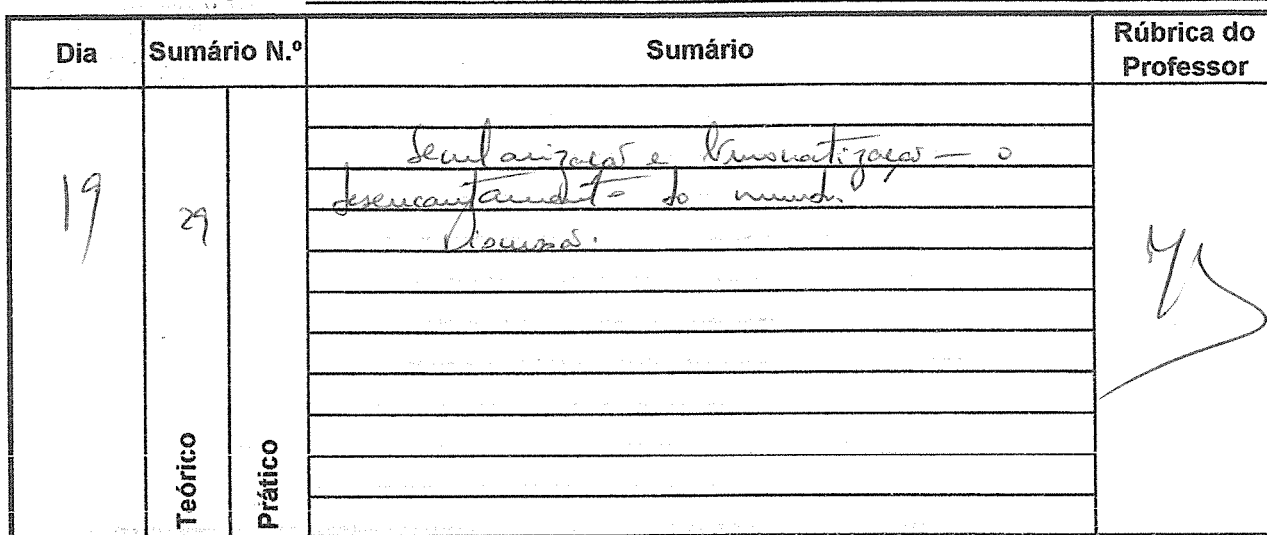 Dia Sumário N.º Sumário Rúbrica do Professor
Secularização e – o
desencantamento do mundo.
Discussão.
19 29
Teórico Prático